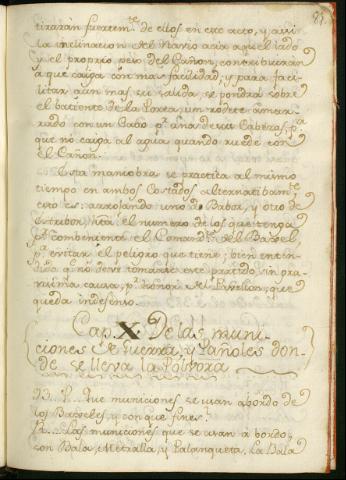 tirarán fuertem.te de ellos en este acto, y assi
la inclinacion del Navio acia aquel lado
y el proprio peso del Cañon, contribuiran
à que caiga con mas facilidad, y para faci-
litar aun mas su salida, se pondrà sobre
el batiente de la Porta, un rodete amar-
rado con un Cabo p.r una de sus Cabezas, p.a
que no caiga al agua quando ruede con
el Cañon.
Esta maniobra se practica al mismo
tiempo en ambos Costados alternatibam.te
esto es: arrojando uno de Babor, y otro de
Estribor, hta. el numero de los que tenga
p.r combeniente el Comand.te del Baxel,
p.a evitar el peligro que tiene; bien enten-
dido q.e no deve tomarse este partido sin pra-
misima causa, p.r honor del Pavellon, que
queda indefenso.
Cap. X. De las muni-
ciones de guerra, y Pañoles don-
de se lleva la Polvora
93. P... Que municiones se usan abordo de
los Baxeles, y con que fines?
R... Las municiones que se usan a bordo,
son Bala, Metralla, y Palanqueta. La Bala